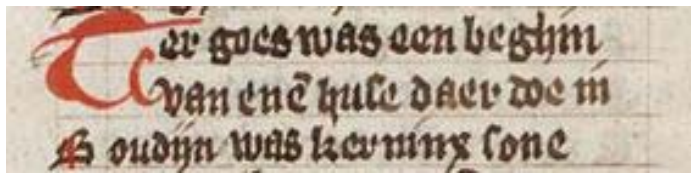 Ter goes was een beghin
van enē huse daer doe in
Boudijn was kerninx sone